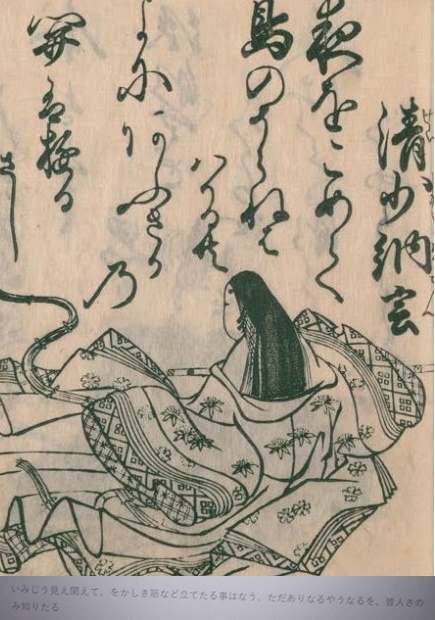 清少納言
夜をこめて
鳥のそらねは
はかる共
よにあふさか乃
関はゆる
さし
いみじう見え聞えて、をかしき筋など立てたる事はなう、ただありなるやうなるを、皆人さの
み知りたる